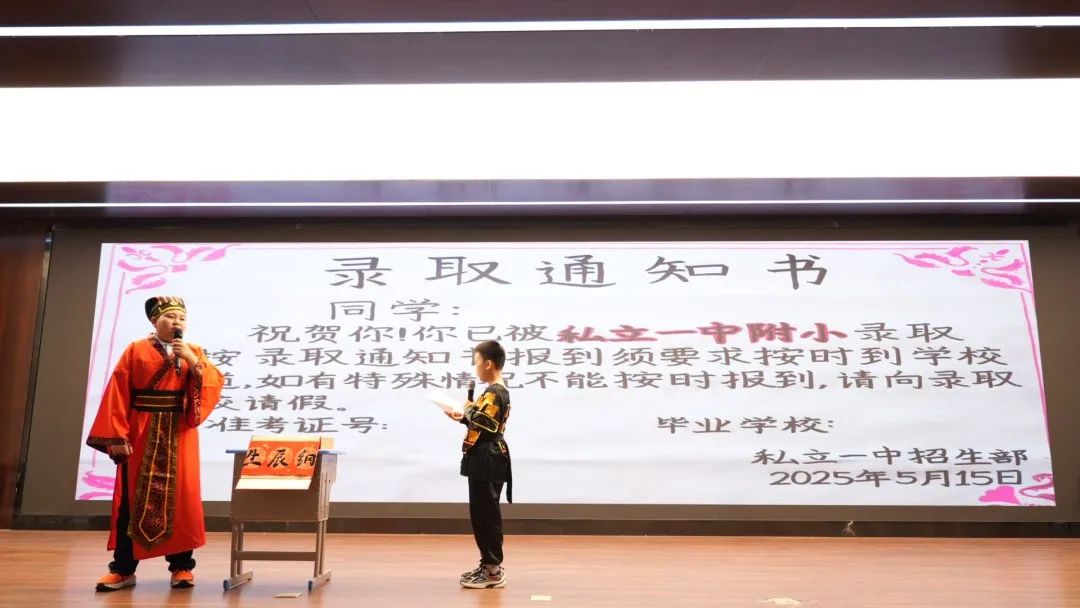 录取通知书
同学:
祝贺你!你已被私立一中附小录取
按录取通知书报到须要求按时到学校
,如有特殊情况不能按时报到,请向录取
校请假。
准考证号:
毕业学校:
私立一中招生部
2025年5月15日
生辰纲